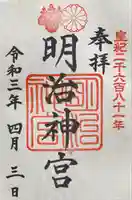 皇紀二千六百八十一年
奉拝
明治神宮
令和三年 四月 三日
明治神宮